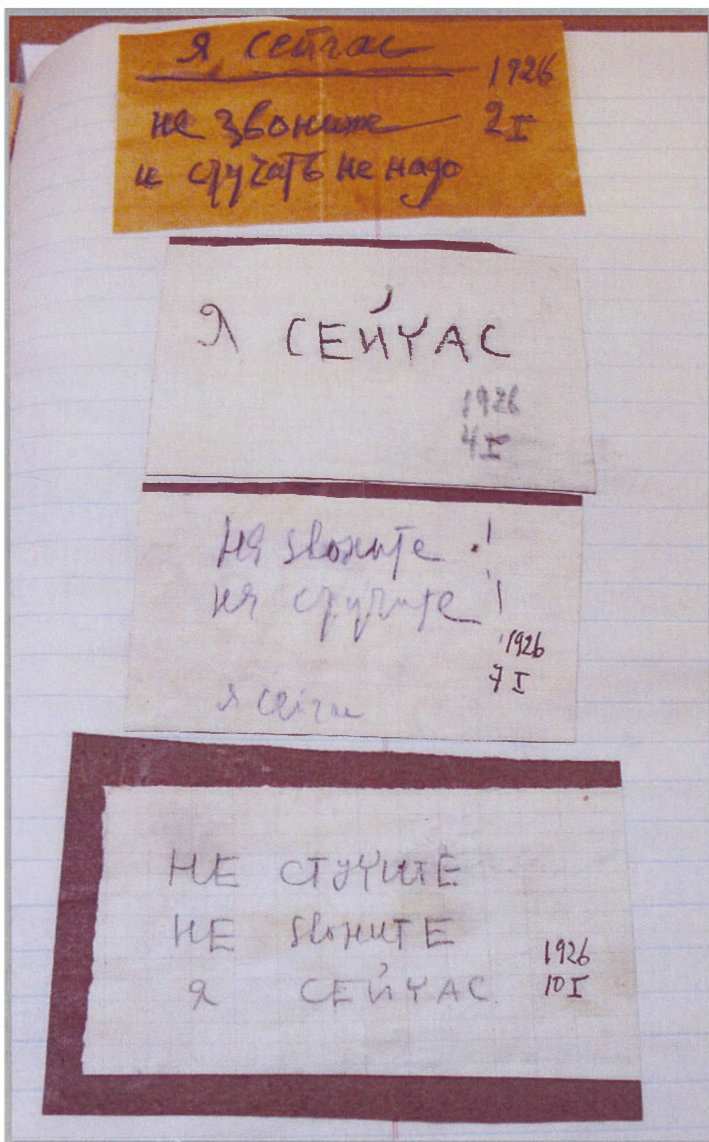 я сейчас
1926
не звоните
2 I
и стучать не надо
Я СЕЙЧАС
1926
4 I
Ня звоните !
ня стучите !
1926
7 I
я сейчас
НЕ СТУЧИТЕ
НЕ ЗвОНИТЕ
1926
Я СЕЙЧАС
10 I